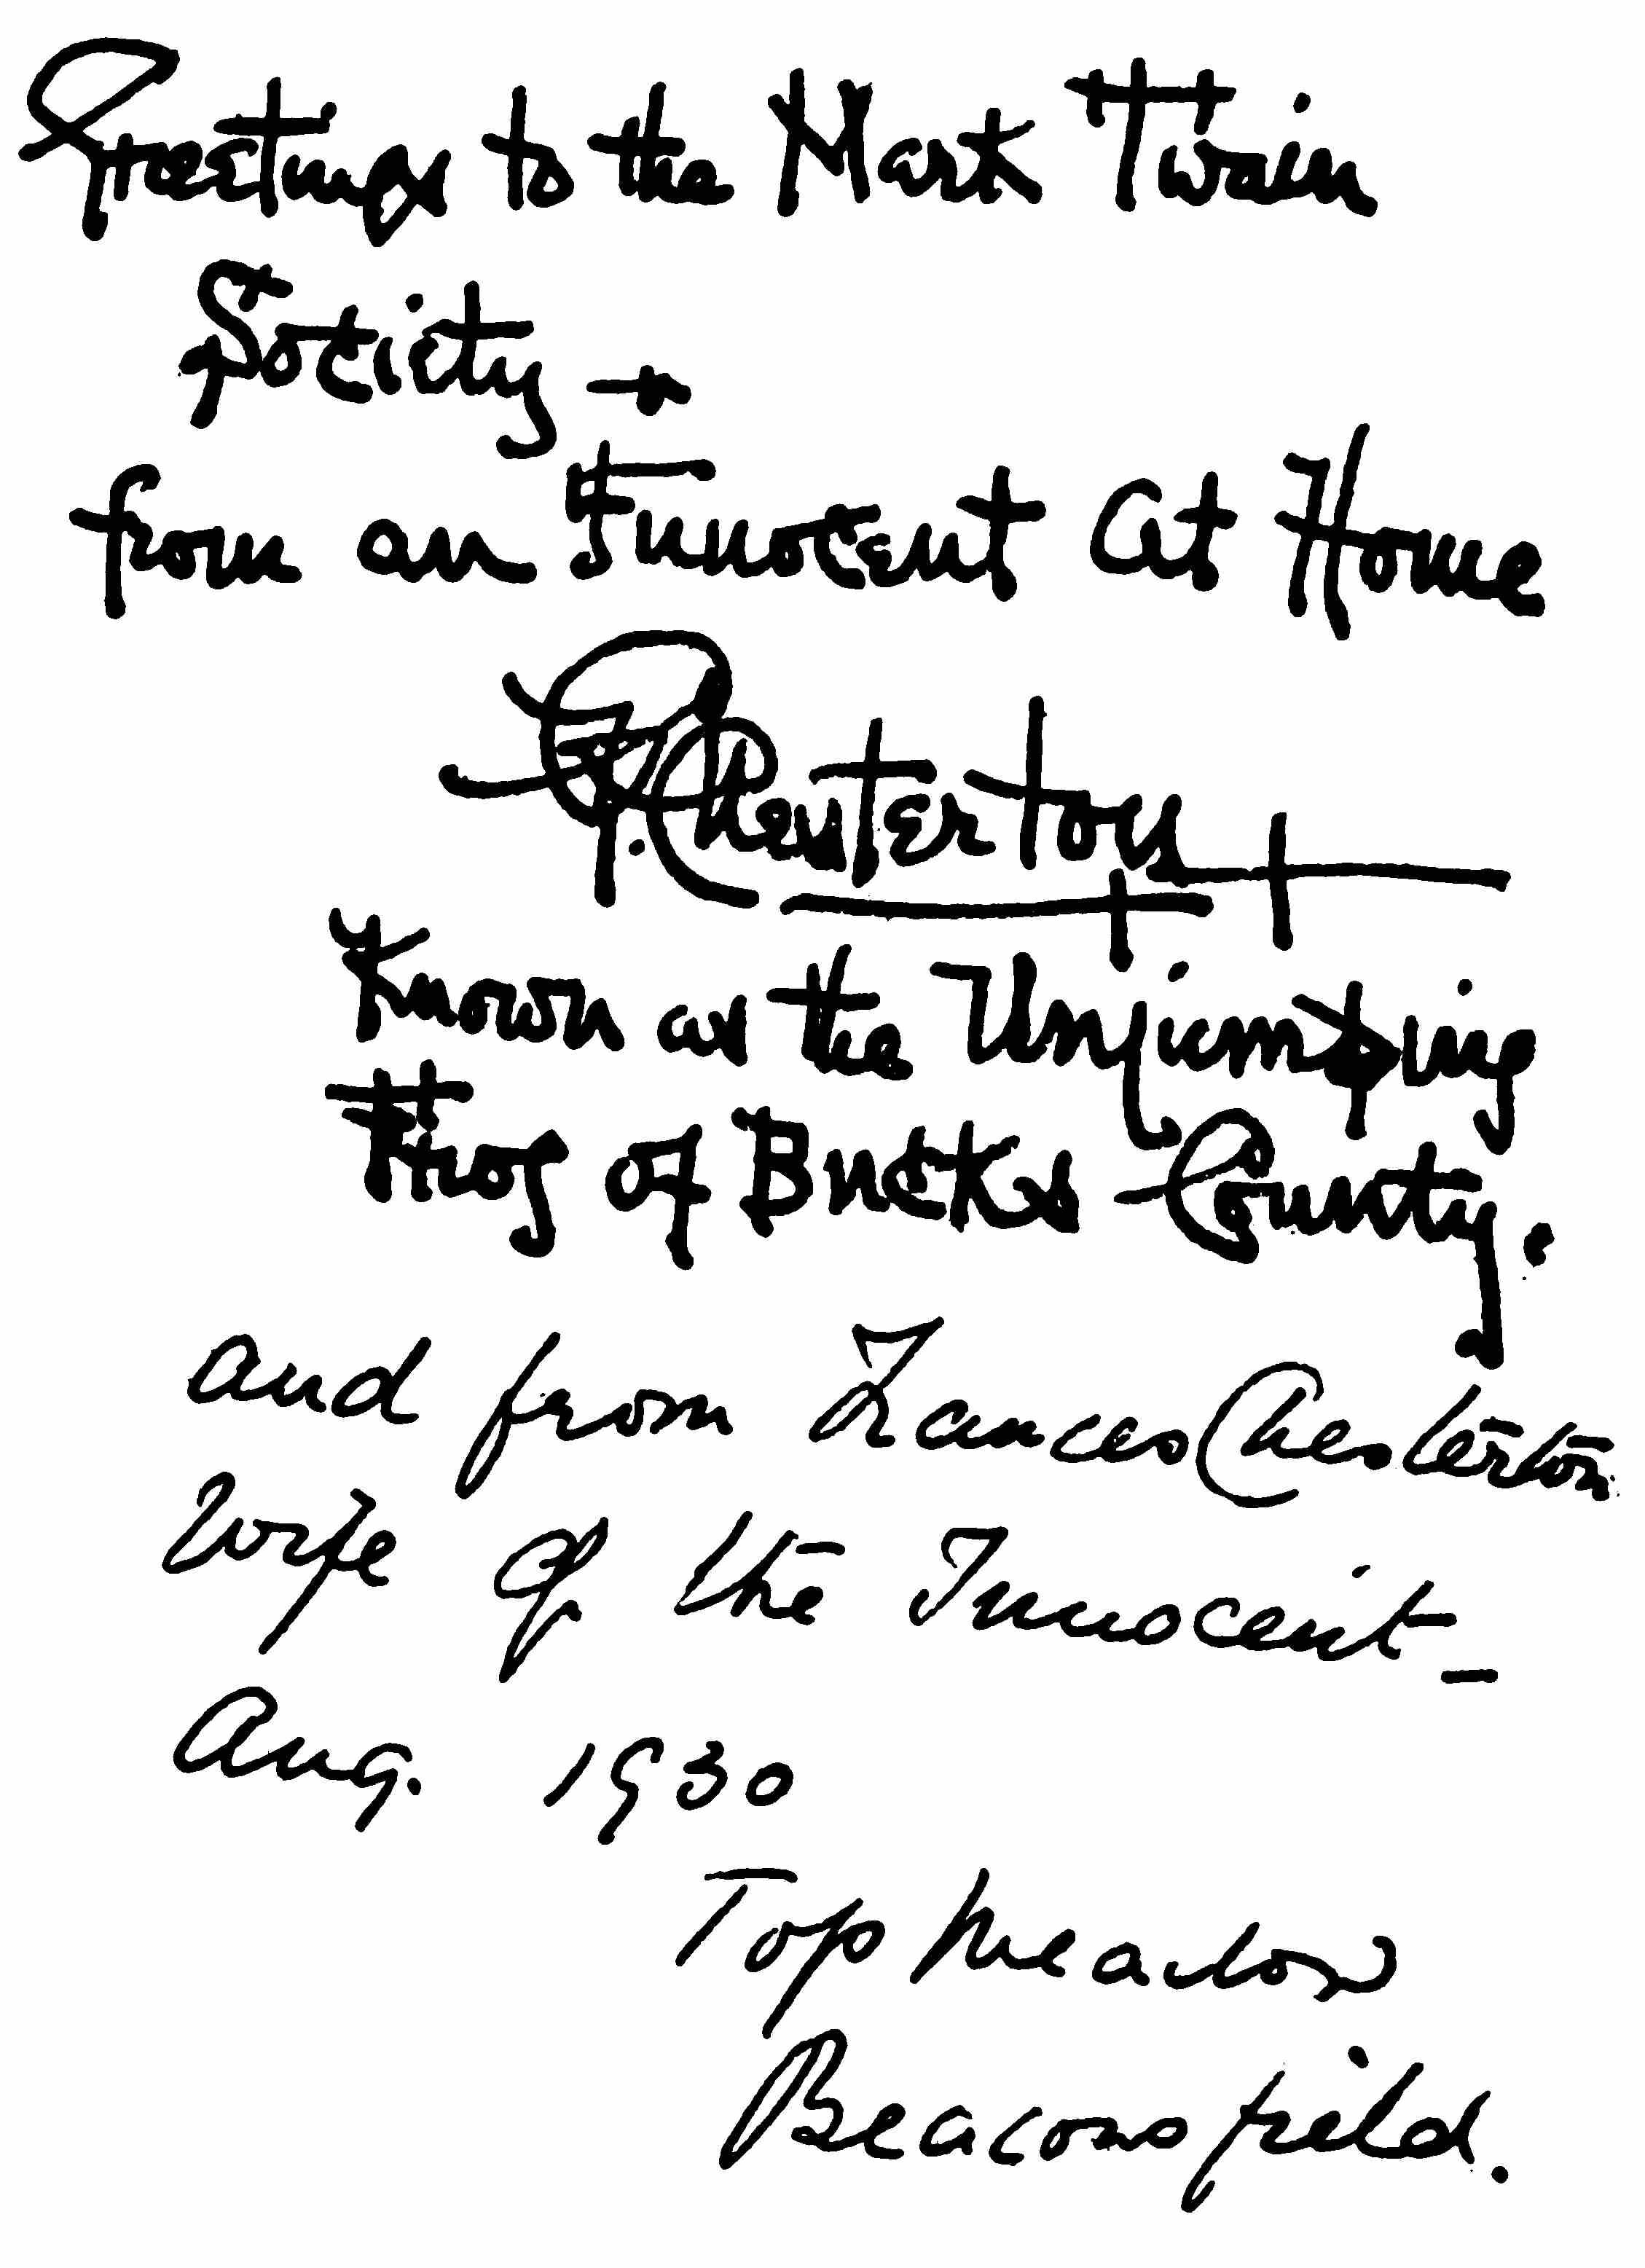 Greetings to the Mark Twain
Society —
from an Innocent At Home
G.K. Chesterton
Known as the Unjumping
Frog of Bucks County.
and from Frances Chesterton
Wife of the Innocent –
Aug. 1930
Top Meadow
Beaconsfield.